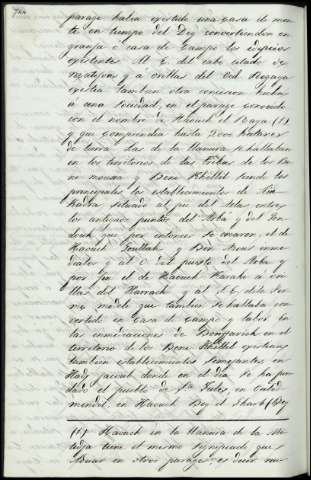 parage habia existido una casa de mon-
te en tiempo del Dey convirtiendose en
granja o casa de Campo los edificios
existentes. Al E. del cabo citado de
Matifux y á orillas del Ued Regaya
existia tambien otra concesion hecha
á una Sociedad, en el parage conocido
con el nombre de Haouch el Baya (1)
y que comprendia hasta 2000 hectareas
de tierra. Las de la llanura se hallaban
en los territorios de las tribus de los Be
ni mousa y Beni Khellil siendo los
principales los establecimientos de
situado al pie del Atlas entre
los antiguos puntos del Arba y del Fon-
douk que por entonces se crearon, el de
Haouch y Ben inme
diatos y al O. del puesto del Arba y
por fin el de Haouch á ori-
llas del Harrach y al S. E. de la Fer-
me modele que tambien se hallaba con
vertido en Casa de Campo y labor en
las inmediaciones de Bouffarick en el
territorio de los Beni Khellil existian
tambien establecimientos semejantes en
donde en el dia se ha fun-
dado el pueblo de Sta en
en Haouch Bey el Gharb (Bey
(1) Haouch en la llanura de la Me-
tidja tiene el mismo significado que
en otros parages, es decir ca-